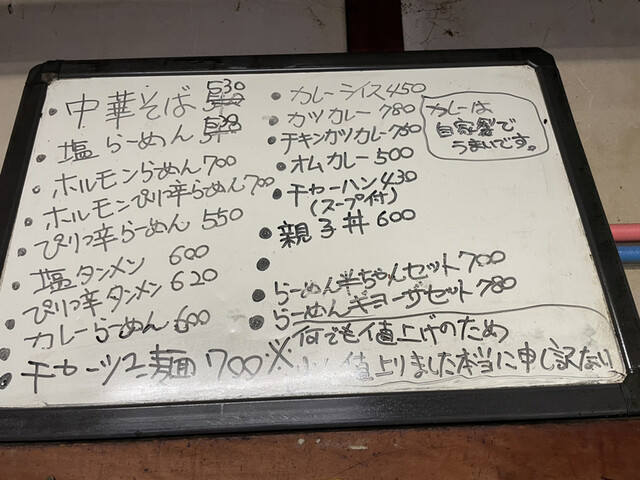 中華そば 530
塩らーめん
ホルモンらーめん 700
ホルモンぴり辛らーめん 700
ぴりつ辛らーめん 550
塩タンメン 600
ぴりつ辛タンメン 620
カレーらーめん 600
チャーシュー麺 700
カレーライス 450
カツカレー 780
チキンカツカレー
オムカレー 500
チャーハン 430
(スープ付)
親子丼 600
らーめん半ちゃんセット 700
らーめんギョーザセット 780
カレーは
自家製で
うまいです。
※何でも値上げのため
値上りました本当に申し訳ない